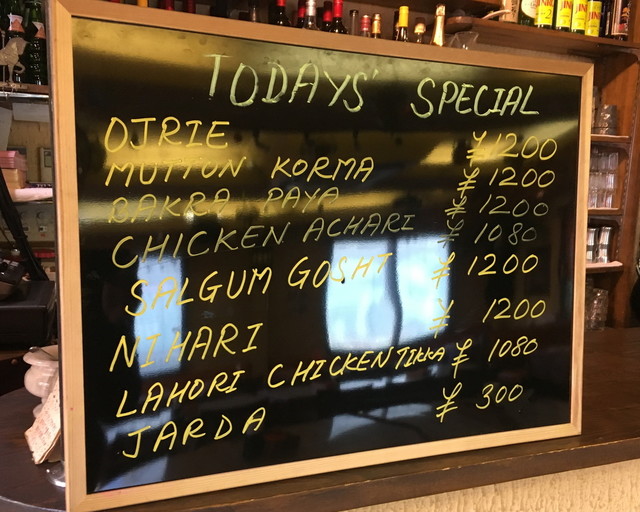 TODAYS' SPECIAL
OJRIE ¥1200
MUTTON KORMA ¥1200
BAKRA PAYA ¥1200
CHICKEN ACHARI ¥1080
SALGUM GOSHT ¥1200
NIHARI ¥1200
LAHORI CHICKEN TIKKA ¥1080
JARDA ¥300